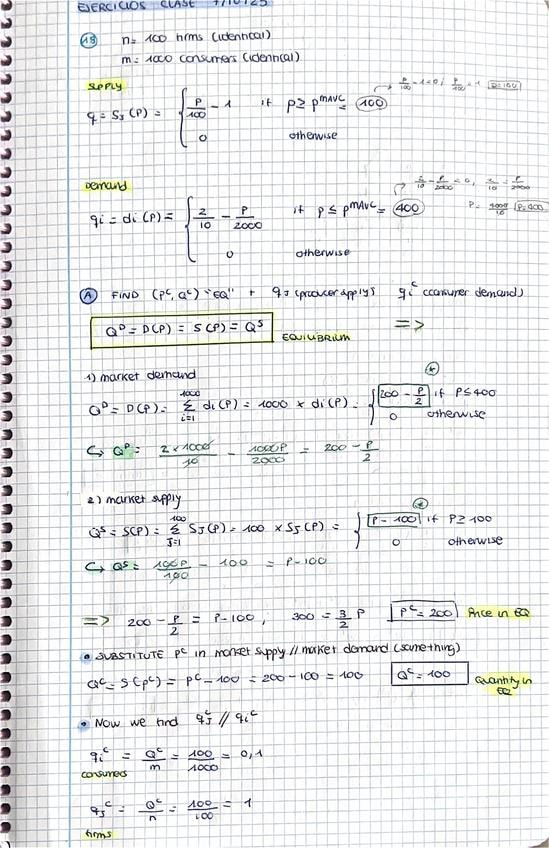 EJERCICIOS CLASE 7/10/25
18 n = 100 firms (identical)
m = 1000 consumers (identical)
SUPPLY
P/100 - 1 = 0; P/100 = 1
q = Sj(P) = { P/100 - 1 if p ≥ p^mAVC = 100
0 otherwise
Demand
2/10 - P/2000 = 0, 2/10 = P/2000
qi = di(P) = { 2/10 - P/2000 if p ≤ p^mAVC = 400
P = 4000/10 P=400
0 otherwise
A FIND (P^c, Q^c) "EQ" + qj (producer supply) qi^c (consumer demand)
Q^D = D(P) = S(P) = Q^S EQUILIBRIUM =>
1) market demand
Q^D = D(P) = 1000 Σ i=1 di(P) = 1000 × di(P) = { 200 - P/2 if P ≤ 400
0 otherwise
↪ Q^D = 2×1000/10 - 1000P/2000 = 200 - P/2
2) market supply
Q^S = S(P) = 100 Σ J=1 SJ(P) = 100 × SJ(P) = { P - 100 if P ≥ 100
0 otherwise
↪ Q^S = 100P/100 - 100 = P - 100
=> 200 - P/2 = P - 100; 300 = 3/2 P P^c = 200 Price in EQ
• SUBSTITUTE P^c in market supply // market demand (same thing)
Q^c = S(P^c) = P^c - 100 = 200 - 100 = 100 Q^c = 100 Quantity in EQ
• Now we find qJ^c // qi^c
qi^c = Q^c/m = 100/1000 = 0,1
consumers
qJ^c = Q^c/n = 100/100 = 1
firms